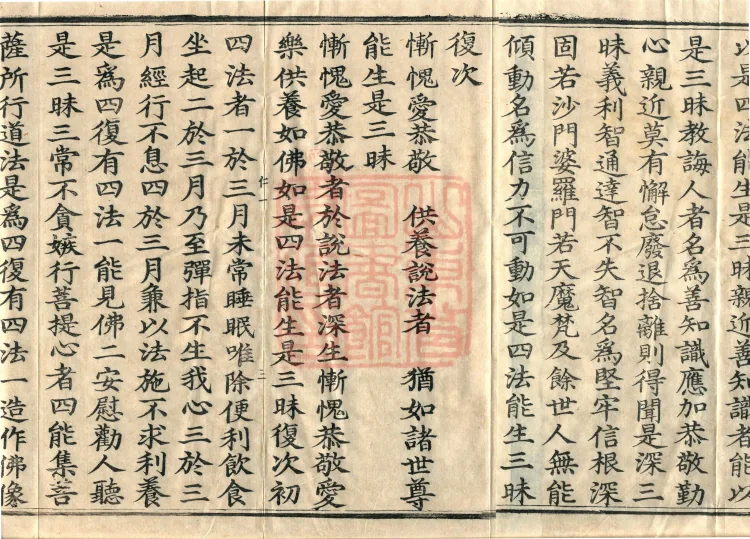 以是四法能生是三昧親近善知識者能以
是三昧教誨人者名爲善知識應加恭敬勤
心親近莫有懈怠廢退捨離則得聞是深三
昧義利智通達智不失智名爲堅牢信根深
固若沙門婆羅門若天魔梵及餘世人無能
傾動名爲信力不可動如是四法能生三昧
復次
慚愧愛恭敬　供養說法者　猶如諸世尊
能生是三昧
慚愧愛恭敬者於說法者深生慚愧恭敬愛
樂供養如佛如是四法能生是三昧復次初
四法者一於三月未常睡眠唯除便利飲食
坐起二於三月乃至彈指不生我心三於三
月經行不息四於三月兼以法施不求利養
是爲四復有四法一能見佛二安慰勸人聽
是三昧三常不貪嫉行菩提心者四能集菩
薩所行道法是爲四復有四法一造作佛像